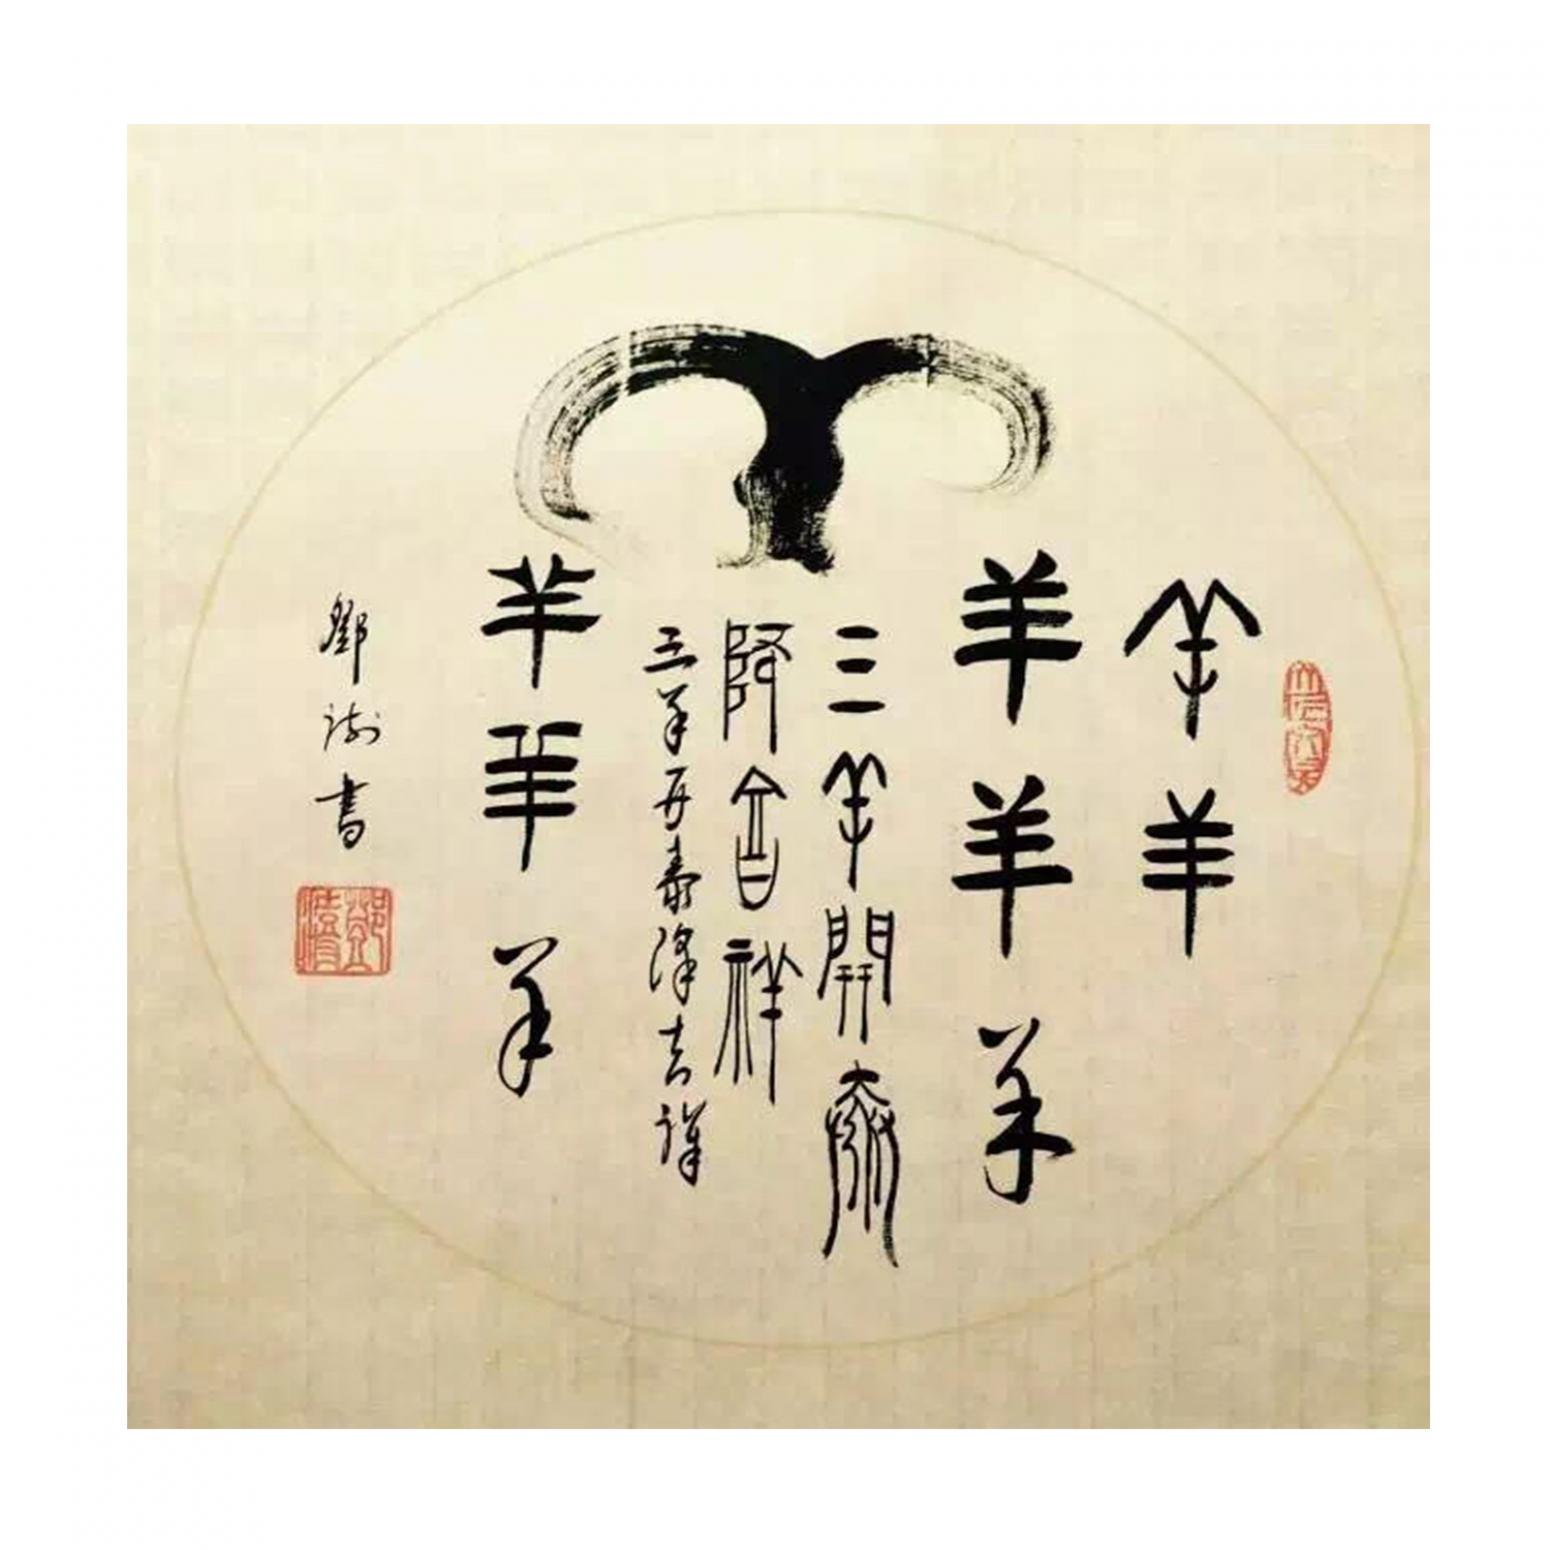 羊羊
羊羊羊
三羊開泰
降吉祥
三羊開泰降吉祥
羊羊羊
鄧澍書